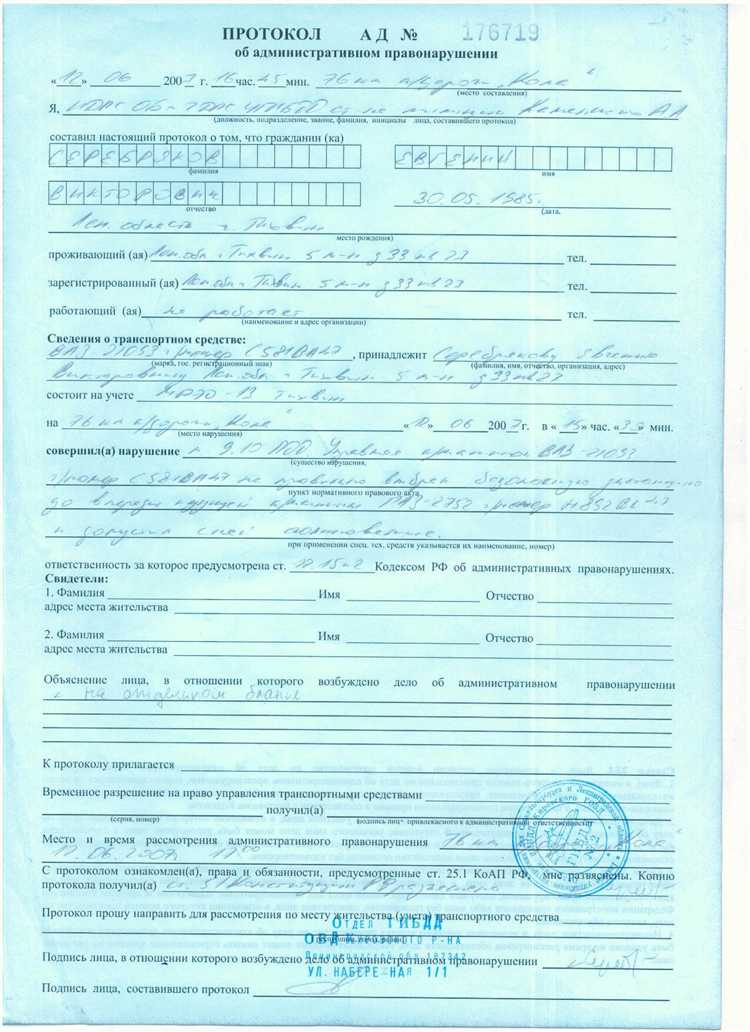 ПРОТОКОЛ АД № 176719
об административном правонарушении
«12» 06 2007 г. 16 час. 45 мин. 76 км а/дороги „Кола“
(место составления)
Я,
(должность, подразделение, звание, фамилия, инициалы лица, составившего протокол)
составил настоящий протокол о том, что гражданин (ка)
СЕРЕБРЯКОВ ЕВГЕНИЙ
фамилия имя
ВИКТОРОВИЧ 30.05.1985.
отчество (дата,
Лен. область г. Тихвин
место рождения)
проживающий (ая) Лен.обл. г. Тихвин 5 м-н д 33 кв 23 тел.
зарегистрированный (ая) Лен.обл. г. Тихвин 5 м-н д 33 кв 23 тел.
работающий (ая) не работает тел.
(наименование и адрес организации)
Сведения о транспортном средстве:
ВАЗ 21053 г/номер С581ВА47, принадлежит Серебрякову Евгению
(марка, гос. регистрационный знак) (фамилия, имя, отчество, организация, адрес)
Викторовичу Лен.обл. г. Тихвин 5 м-н д 33 кв 23
состоит на учете МРЭО-13 Тихвин
на 76 км а/дороги „Кола“ «12» 06 2007 г. в «15» час. «35» мин.
(место нарушения)
совершил(а) нарушение п. 9.10 ПДД Управляя ВАЗ-21053
(существо нарушения,
г/номер С581ВА47 не правильно выбрал безопасную дистанцию
пункт нормативного правового акта,
до впереди идущей г/номер
и допустил с ней столкновение.
при применении спец. тех. средств указывается их наименование, номер)
ответственность за которое предусмотрена ст. 12.15 ч2 Кодексом РФ об административных правонарушениях.
Свидетели:
1. Фамилия Имя Отчество
адрес места жительства
2. Фамилия Имя Отчество
адрес места жительства
Объяснение лица, в отношении которого возбуждено дело об административном правонарушении
на отдельном бланке
К протоколу прилагается
Временное разрешение на право управления транспортными средствами
получил(а)
(серия, номер) (подпись лица привлекаемого к административной ответственности)
Место и время рассмотрения административного правонарушения 76 км „Кола“
12.06.2007 17 00
С протоколом ознакомлен(а), права и обязанности, предусмотренные ст. 25.1 КоАП РФ, мне разъяснены. Копию
протокола получил(а) ст. 51 Конституции РФ разъяснена
Протокол прошу направить для рассмотрения по месту жительства (учета) транспортного средства
ОТДЕЛ ГИБДД
ОВД КИРОВСКОГО Р-НА
Ленинградской обл 187342
УЛ. НАБЕРЕЖНАЯ 1/1
Подпись лица, в отношении которого возбуждено дело об административном правонарушении
Подпись лица, составившего протокол